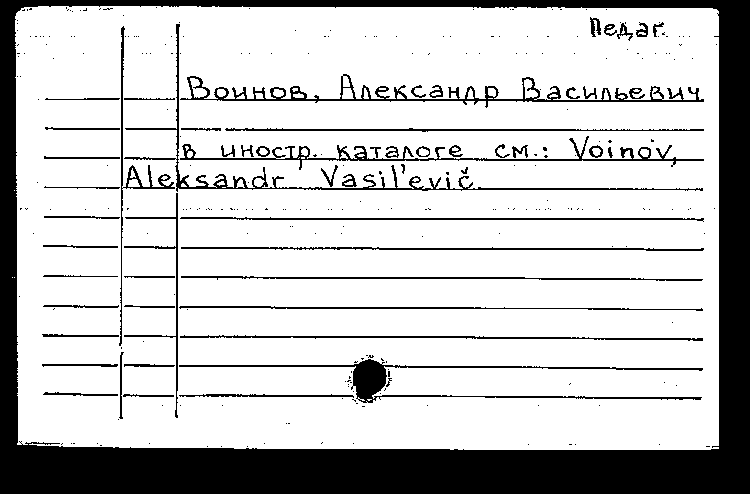 Педаг.
Воинов, Александр Васильевич
в иностр. каталоге см.: Voinov,
Aleksandr Vasil'evič.